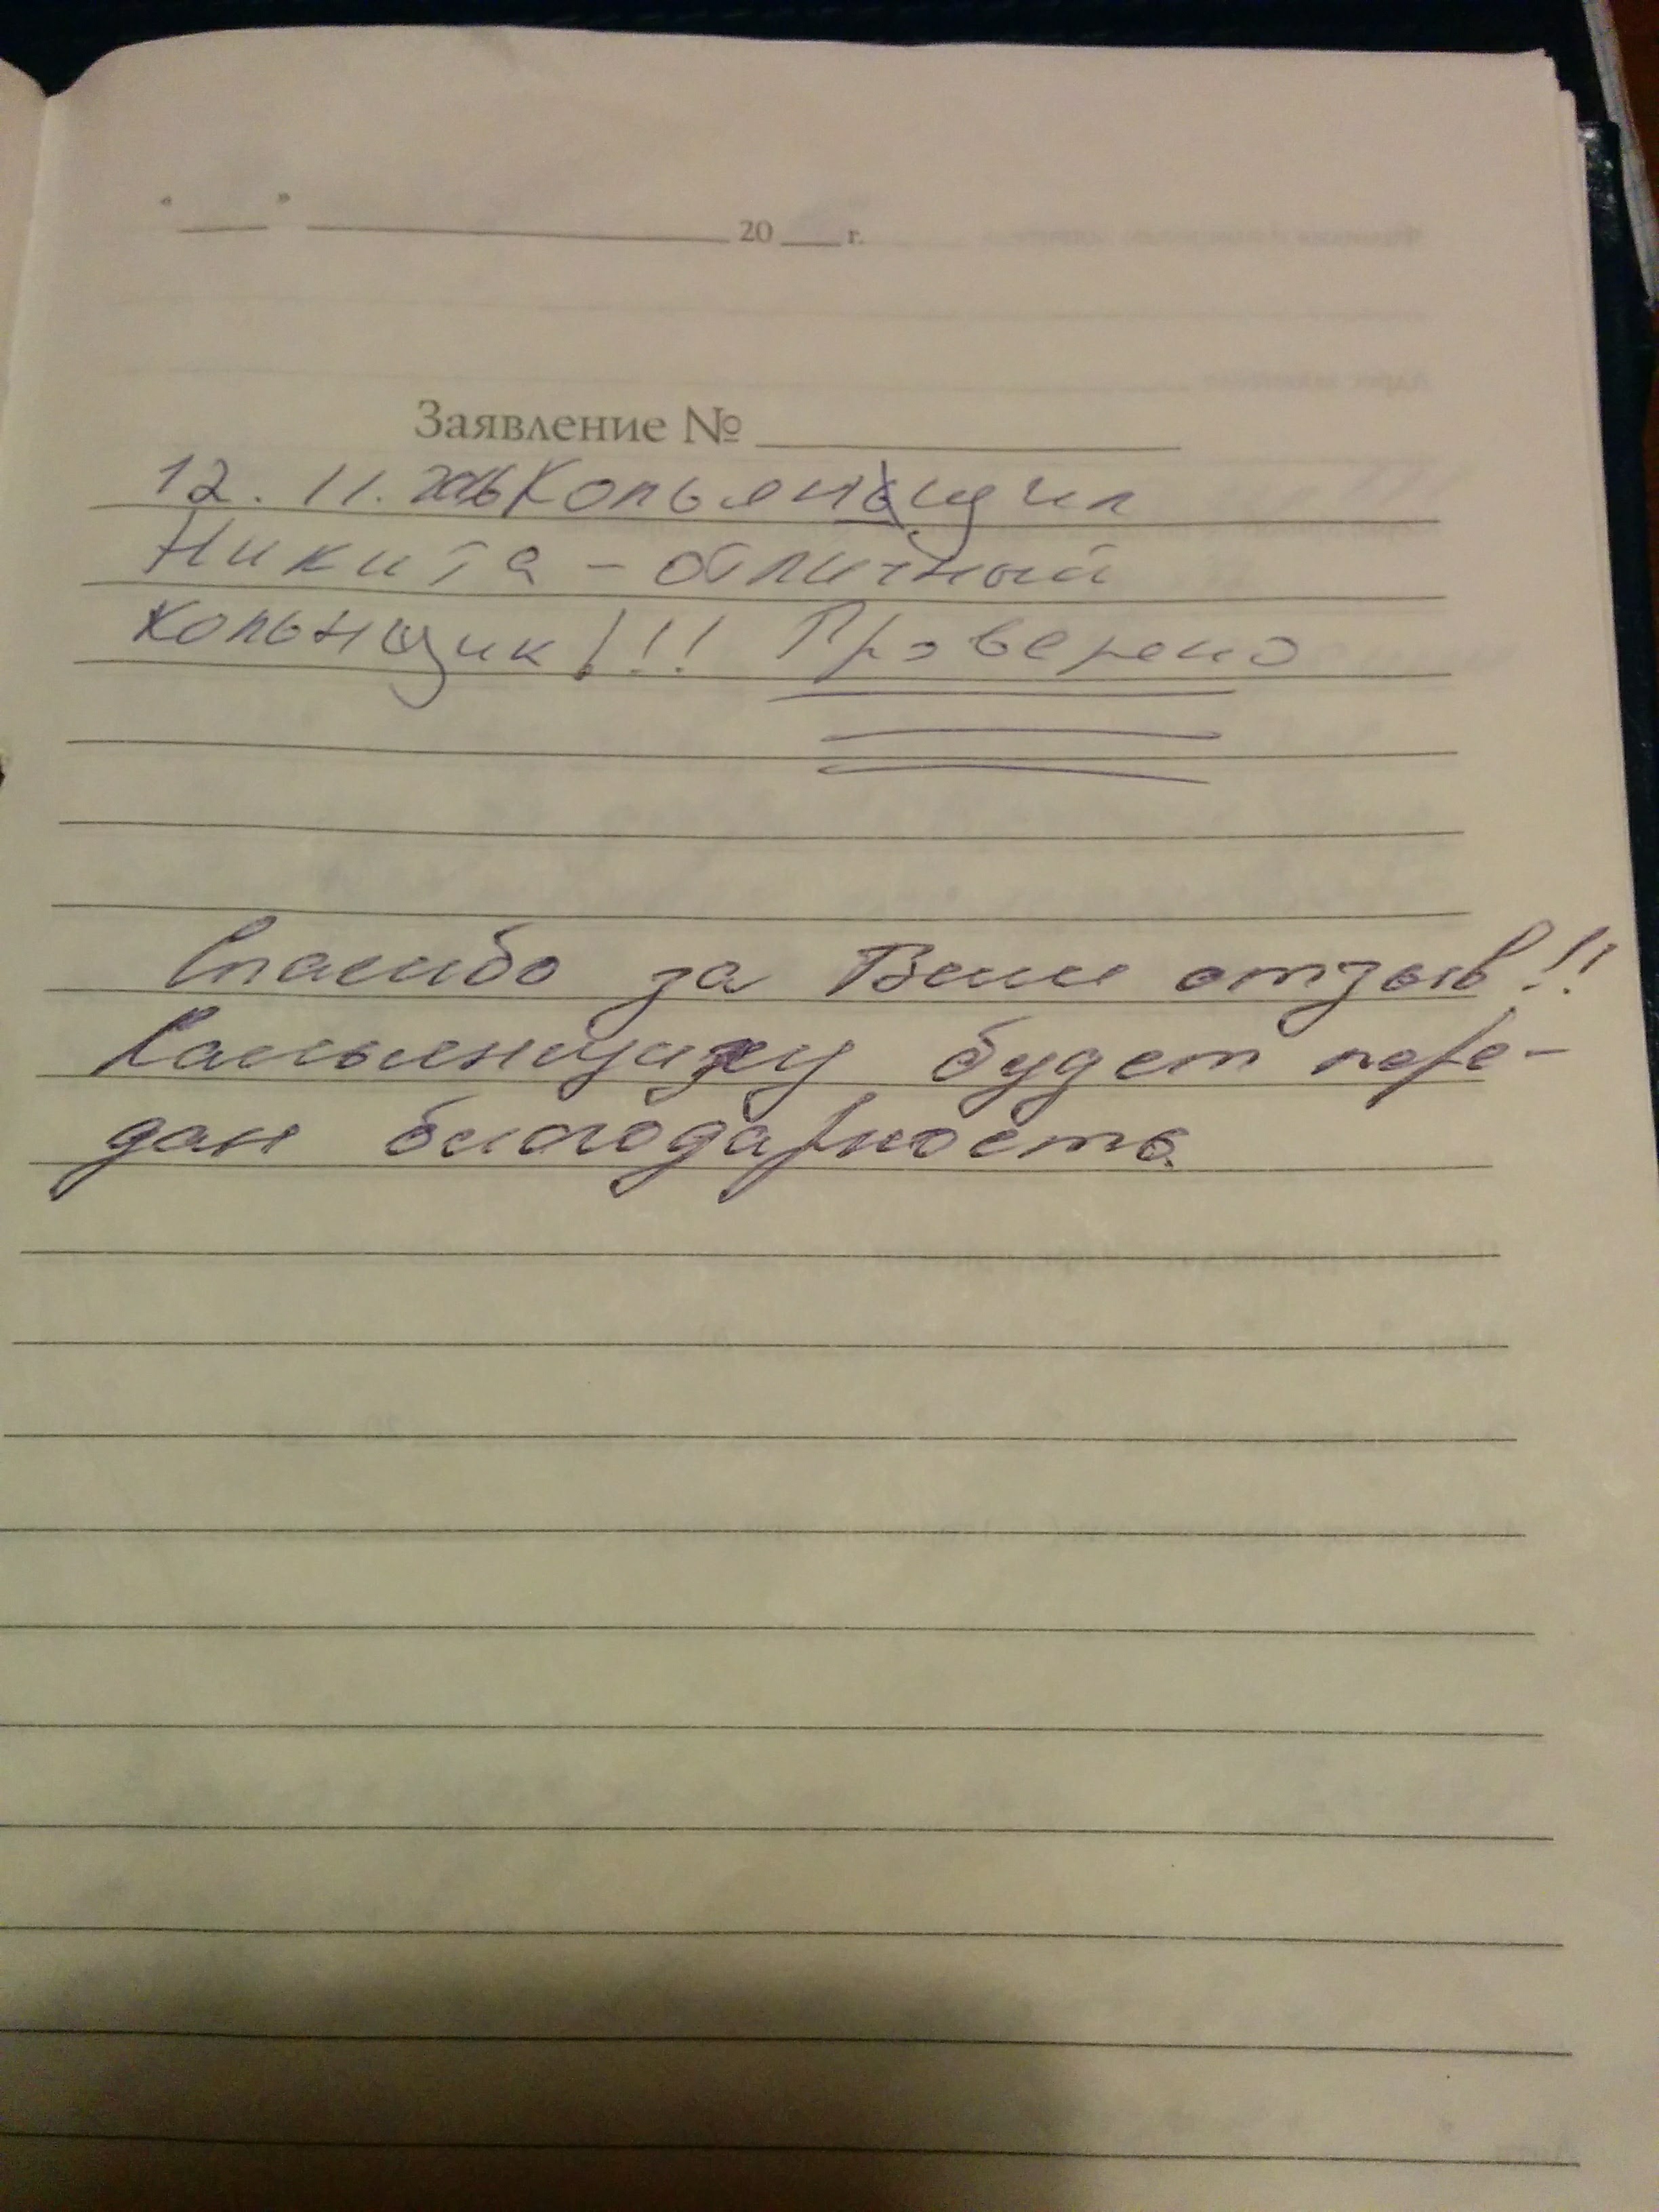 « » 20 г.
Заявление №
12. 11. 2016 Кольянщик
Никита – отличный
кольнщик!!! Проверено
Спасибо за Ваш отзыв!!
Кальянщику будет пере-
дан благодарность